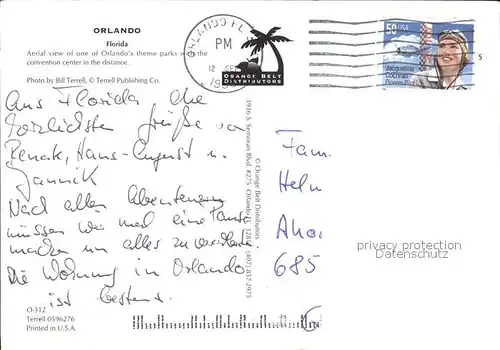 ORLANDO
Florida
Aerial view of one of Orlando's theme parks and the
convention center in the distance.
Photo by Bill Terrell, © Terrell Publishing Co.
Aus Florida die
herzlichsten Grüße von
Renate, Hans-August u.
Jannik
Nach allen Abenteuern
müssen wir mal eine Pause
machen um alles zu verarbeiten.
Die Wohnung in Orlando
ist bestens.
O-312
Terrell 0596276
Printed in U.S.A.
ORLANDO FL
PM
12
ORANGE BELT
DISTRIBUTORS
50 USA
Jacqueline
Cochran
Pioneer Pilot
5
© Orange Belt Distributors
3936 S. Semoran Blvd. #275 Orlando FL (407) 857-2975
Fam.
Helm
685
privacy protection
Datenschutz